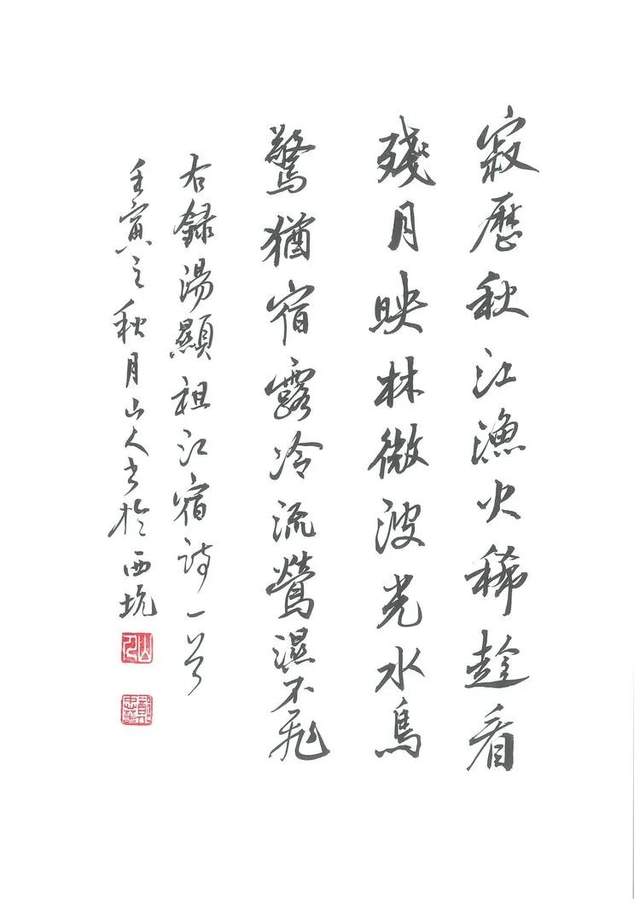 寂歷秋江漁火稀看
殘月映林微波光水鳥
驚猶宿露冷流鶯濕不飛
右錄湯顯祖江宿詩一首
壬寅之秋月山人書於西坑
山人